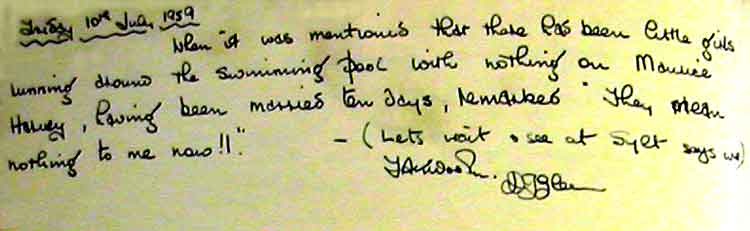 Friday 10th July 1959
When it was mentioned that there has been little girls
running around the swimming pool with nothing on Maurice
Harvey, having been married ten days, remarked "They mean
nothing to me now!!" - (Lets wait & see at Sylt says we)